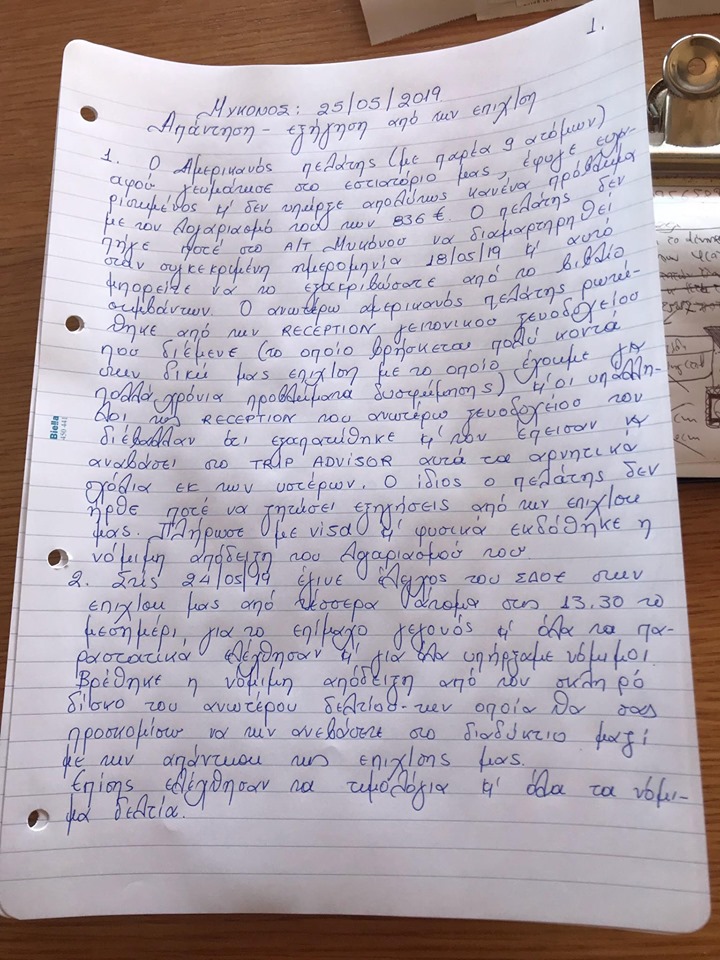 1.
ΜΥΚΟΝΟΣ: 25/05/2019
Απάντηση - εξήγηση από την επιχ/ση
1. Ο Αμερικανός πελάτης (με παρέα 9 ατόμων)
αφού γευμάτισε στο εστιατόριο μας, έφυγε ευχα-
ριστημένος κ' δεν υπήρξε απολύτως κανένα πρόβλημα
με τον λογαριασμό του των 836 €. Ο πελάτης δεν
πήγε ποτέ στο Α/Τ Μυκόνου να διαμαρτηρηθεί
στην συγκεκριμένη ημερομηνία 18/05/19 κ' αυτό
μπορείτε να το εξακριβώσατε από το βιβλίο
συμβάντων. Ο ανωτέρω αμερικανός πελάτης ρωτή-
θηκε από την RECEPTION γειτονικού ξενοδοχείου
που διέμενε (το οποίο βρήσκεται πολύ κοντά
στην δική μας επιχ/ση με το οποίο έχουμε για
πολλά χρόνια προβλήματα δυσφήμησης) κ' οι υπάλλη-
λοι της RECEPTION του ανωτέρω ξενοδοχείου τον
διέβαλλαν ότι εξαπατήθηκε κ' τον έπεισαν
αναβάσει στο TRIP ADVISOR αυτά τα αρνητικά
σχόλια εκ των υστέρων. Ο ίδιος ο πελάτης δεν
ήρθε ποτέ να ζητώσει εξηγήσεις από την επιχ/ση
μας. Πλήρωσε με visa κ' φυσικά εκδόθηκε η
νόμιμη απόδειξη του λογαριασμού του
2. Στις 24/05/19 έγινε έλεγχος του ΣΔΟΕ στην
επιχ/ση μας από τέσσερα άτομα στις 13.30 το
μεσημέρι, για το επίμαχο γεγονός κ' όλα τα πα-
ραστατικά ελέγθησαν κ' για όλα υπήρξαμε νόμιμοι.
Βρέθηκε η νόμιμη απόδειξη από τον σκληρό
δίσκο του ανωτέρου δελτίου - την οποία θα σας
προσκομίσω να την ανεβάσετε στο διαδύκτιο μαζί
με την απάντηση της επιχ/σης μας.
Επίσης ελέγθησαν τα τιμολόγια κ' όλα τα νόμι-
μα δελτία.
Biella